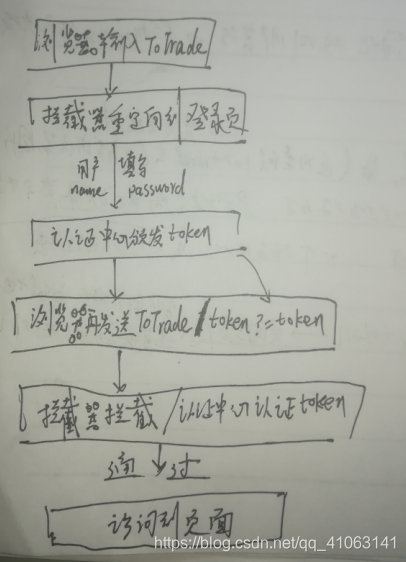 浏览器输入ToTrade
拦截器重定向到登录页
用户 填写
name password
认证中心颁发token
浏览器再发送ToTrade/token?=token
拦截器拦截/认证中心认证token
通 过
访问到页面
https://blog.csdn.net/qq_41063141